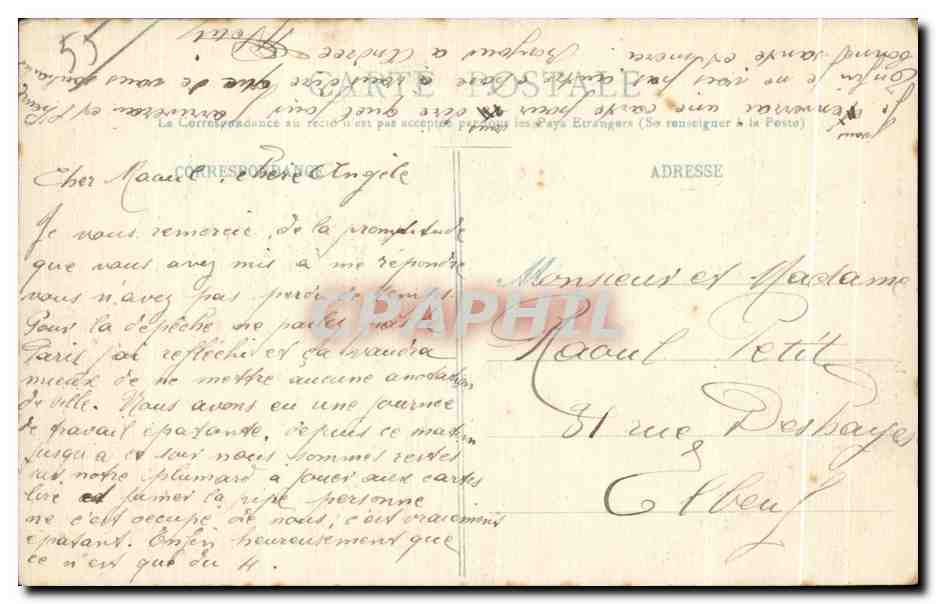 55
CARTE POSTALE
La Correspondance au recto n'est pas acceptée par tous les Pays Etrangers (Se renseigner à la Poste)
CORRESPONDANCE
ADRESSE
Cher Raoul, chère Angèle
Je vous remercie de la promptitude
que vous avez mis à me répondre
vous n'avez pas perdu de temps.
Pour la dépêche ne parles pas
Paris j'ai refléchi et ça vaudra
mieux de ne mettre aucune anotation
de ville. Nous avons eu une journée
de travail épatante, depuis ce matin
jusqu'a ce soir nous sommes restés
sur notre plumard a jouer aux cartes
lire et fumer la pipe personne
ne c'est occupé de nous, c'est vraiement
epatant. Enfin heureusement que
ce n'est que du 4.
Je enverrai une carte pour vous dire quel jour arriverai et l'heure
Enfin je ne vois pas autre chose a vous dire que de vous souhaiter
bonne santé et merci. Bonjour a Andrée
Monsieur et Madame
Raoul Petit
31 rue Deshayes
Elbeuf
CPAPHIL